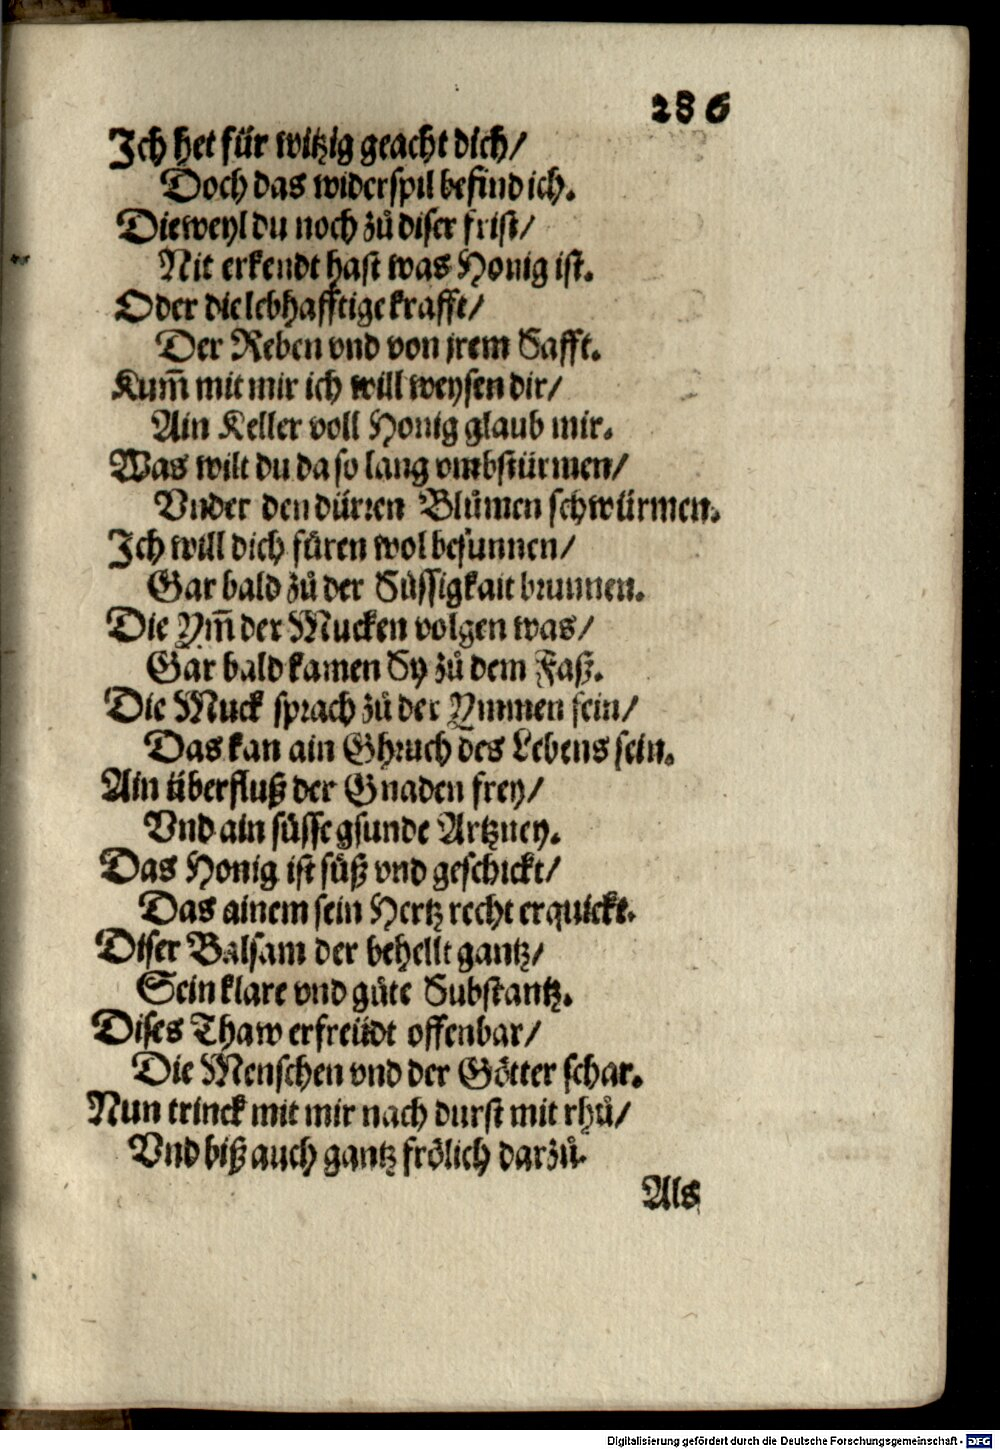 286
Ich het für witzig geacht dich/
Doch das widerspil befind ich.
Dieweyl du noch zů diser frist/
Nit erkendt hast was Honig ist.
Oder die lebhafftige krafft/
Der Reben vnd von jrem Safft.
Kum̃ mit mir ich will weysen dir/
Ain Keller voll Honig glaub mir.
Was wilt du da so lang vmbstürmen/
Vnder den dürren Blůmen schwürmen.
Ich will dich fůren wol besunnen/
Gar bald zů der Sůssigkait brunnen.
Die Ym̃ der Mucken volgen was/
Gar bald kamen Sy zů dem Faß.
Die Muck sprach zů der Ymmen fein/
Das kan ain Ghruch des Lebens sein.
Ain überfluß der Gnaden frey/
Vnd ain sůsse gsunde Artzney.
Das Honig ist sůß vnd geschickt/
Das ainem sein Hertz recht erquickt.
Diser Balsam der behellt gantz/
Sein klare vnd gůte Substantz.
Dises Thaw erfreüdt offenbar/
Die Menschen vnd der Götter schar.
Nun trinck mit mir nach durst mit rhů/
Vnd biß auch gantz frölich darzů.
Als
Digitalisierung gefördert durch die Deutsche Forschungsgemeinschaft - DFG